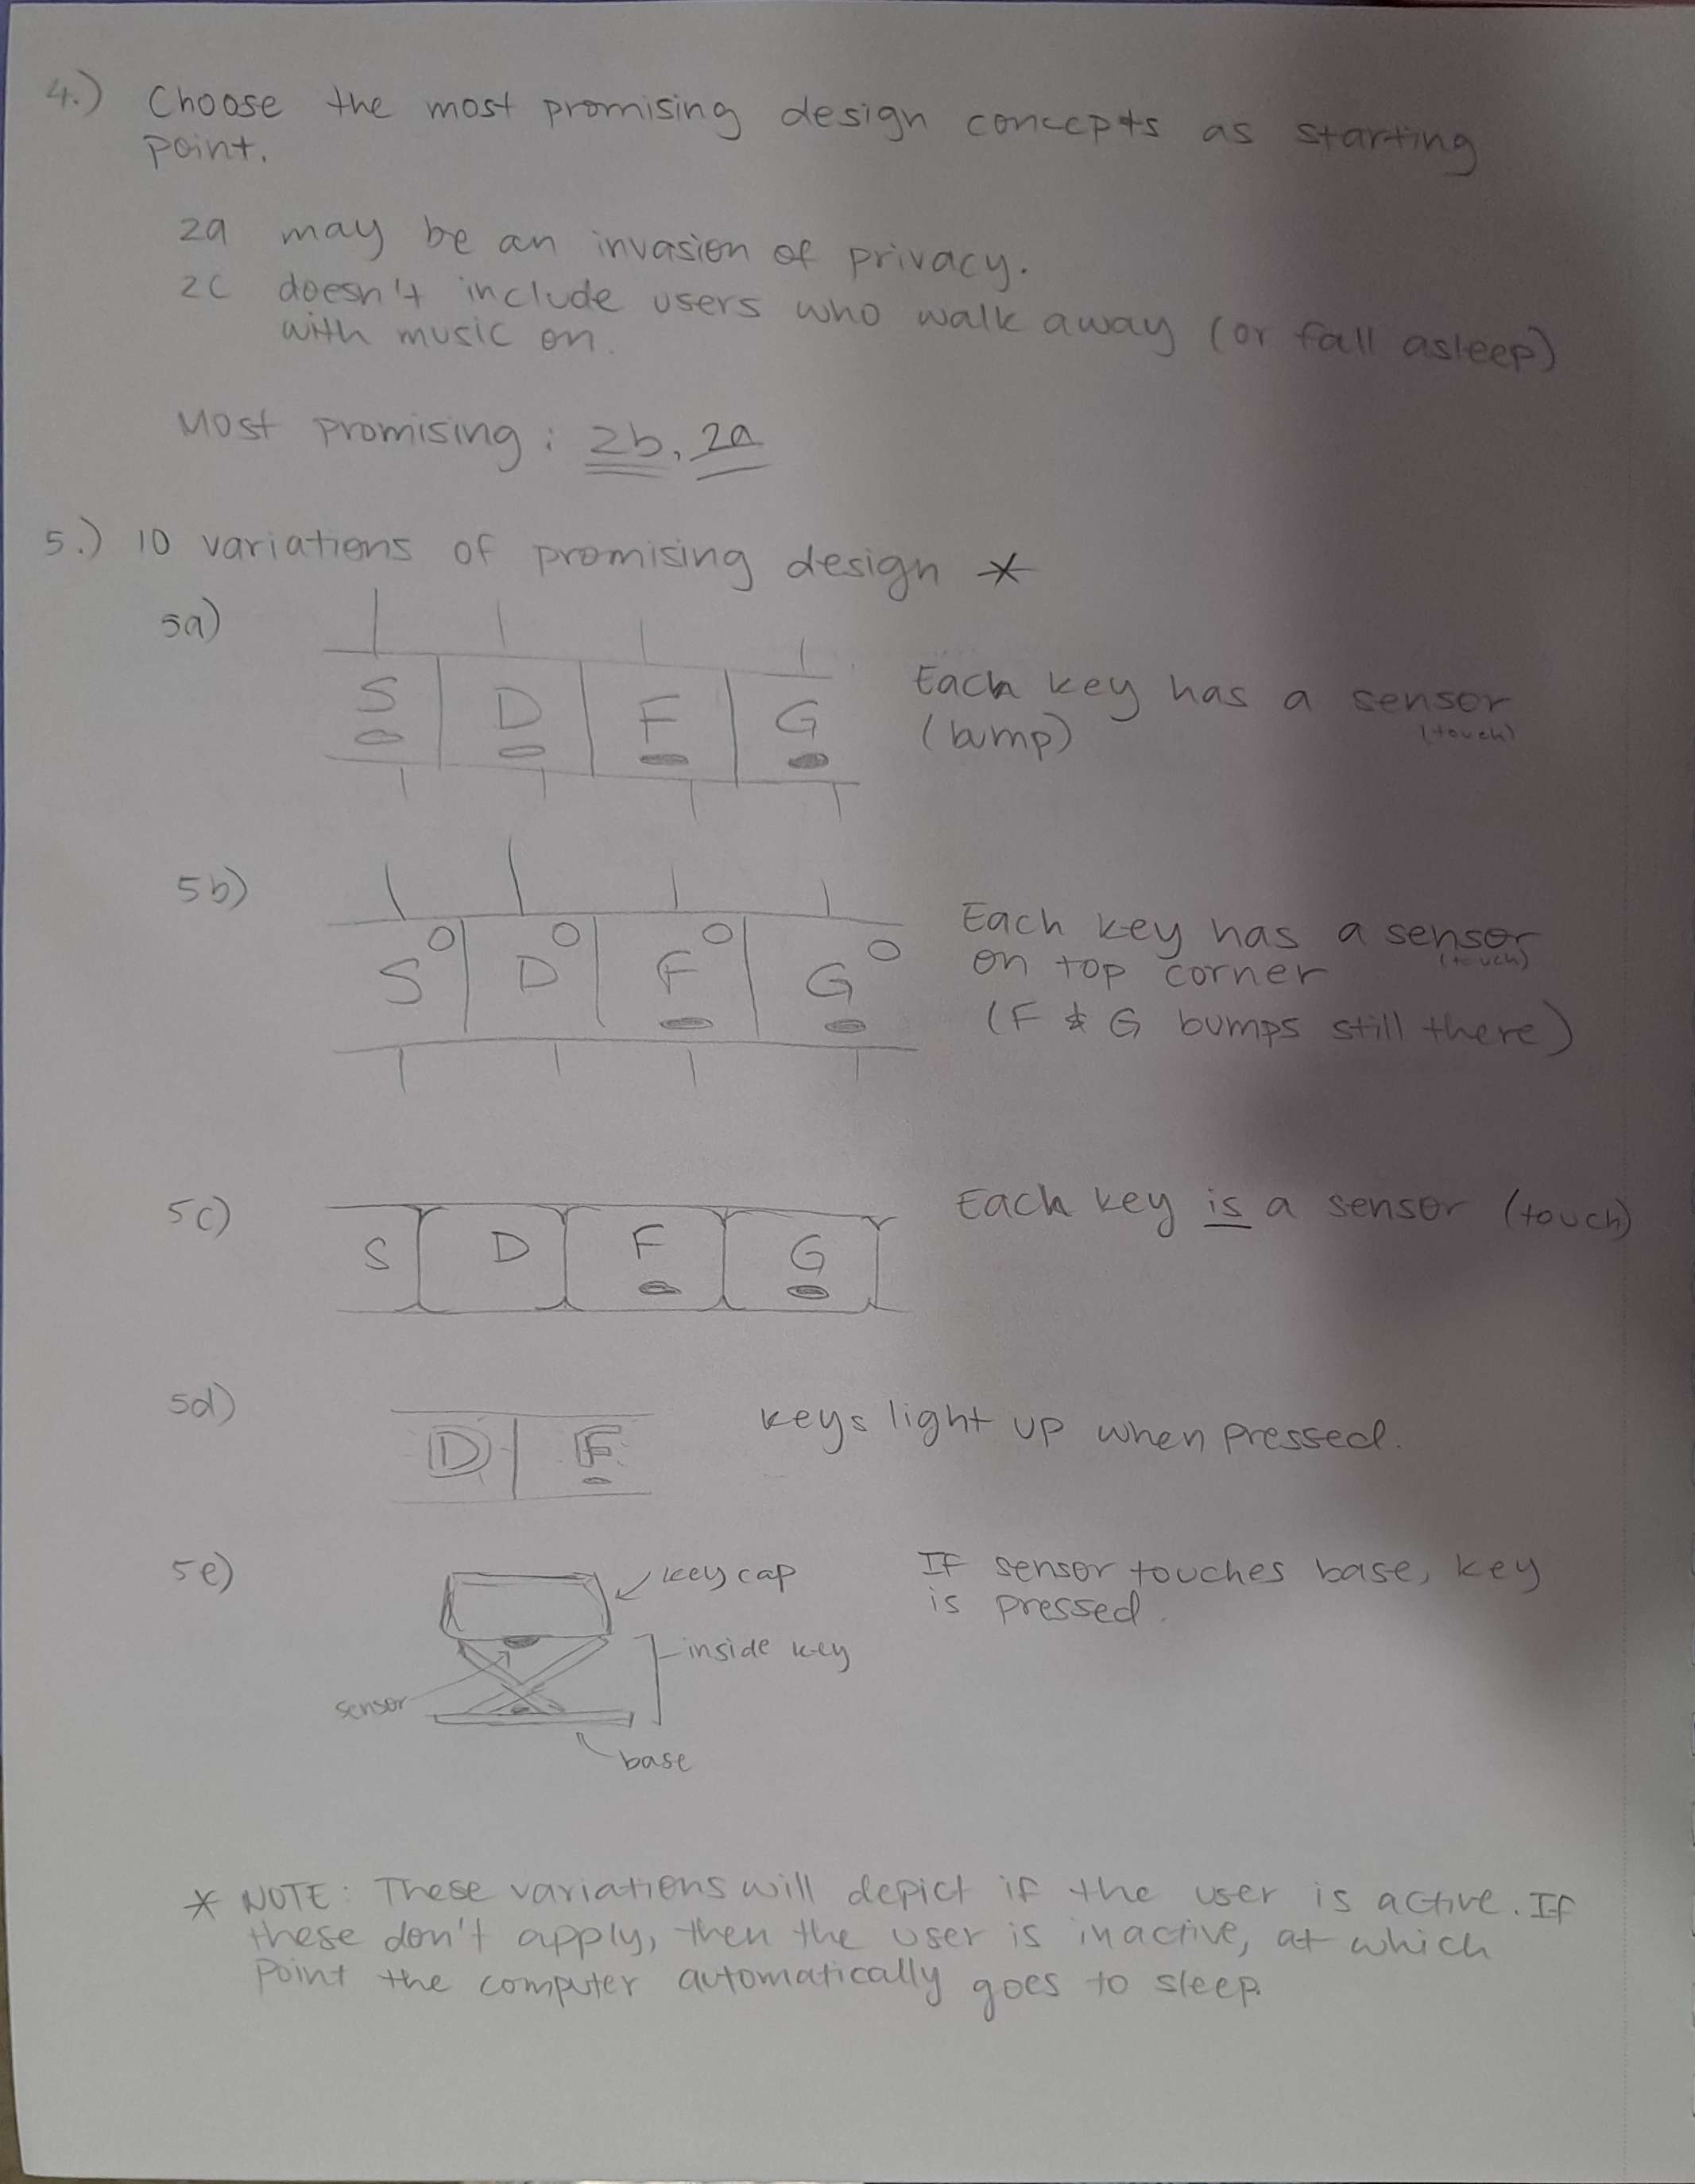 4.) Choose the most promising design concepts as starting
point.
2a may be an invasion of privacy.
2c doesn't include users who walk away (or fall asleep)
with music on.
Most promising : 2b, 2a
5.) 10 variations of promising design *
5a)
S D F G
Each key has a sensor
(bump) (touch)
5b)
S D F G
Each key has a sensor
on top corner (touch)
(F & G bumps still there)
5c)
S D F G
Each key is a sensor (touch)
5d)
D F
keys light up when pressed.
5e)
key cap
inside key
sensor
base
If sensor touches base, key
is pressed.
* NOTE: These variations will depict if the user is active. If
these don't apply, then the user is inactive, at which
point the computer automatically goes to sleep.